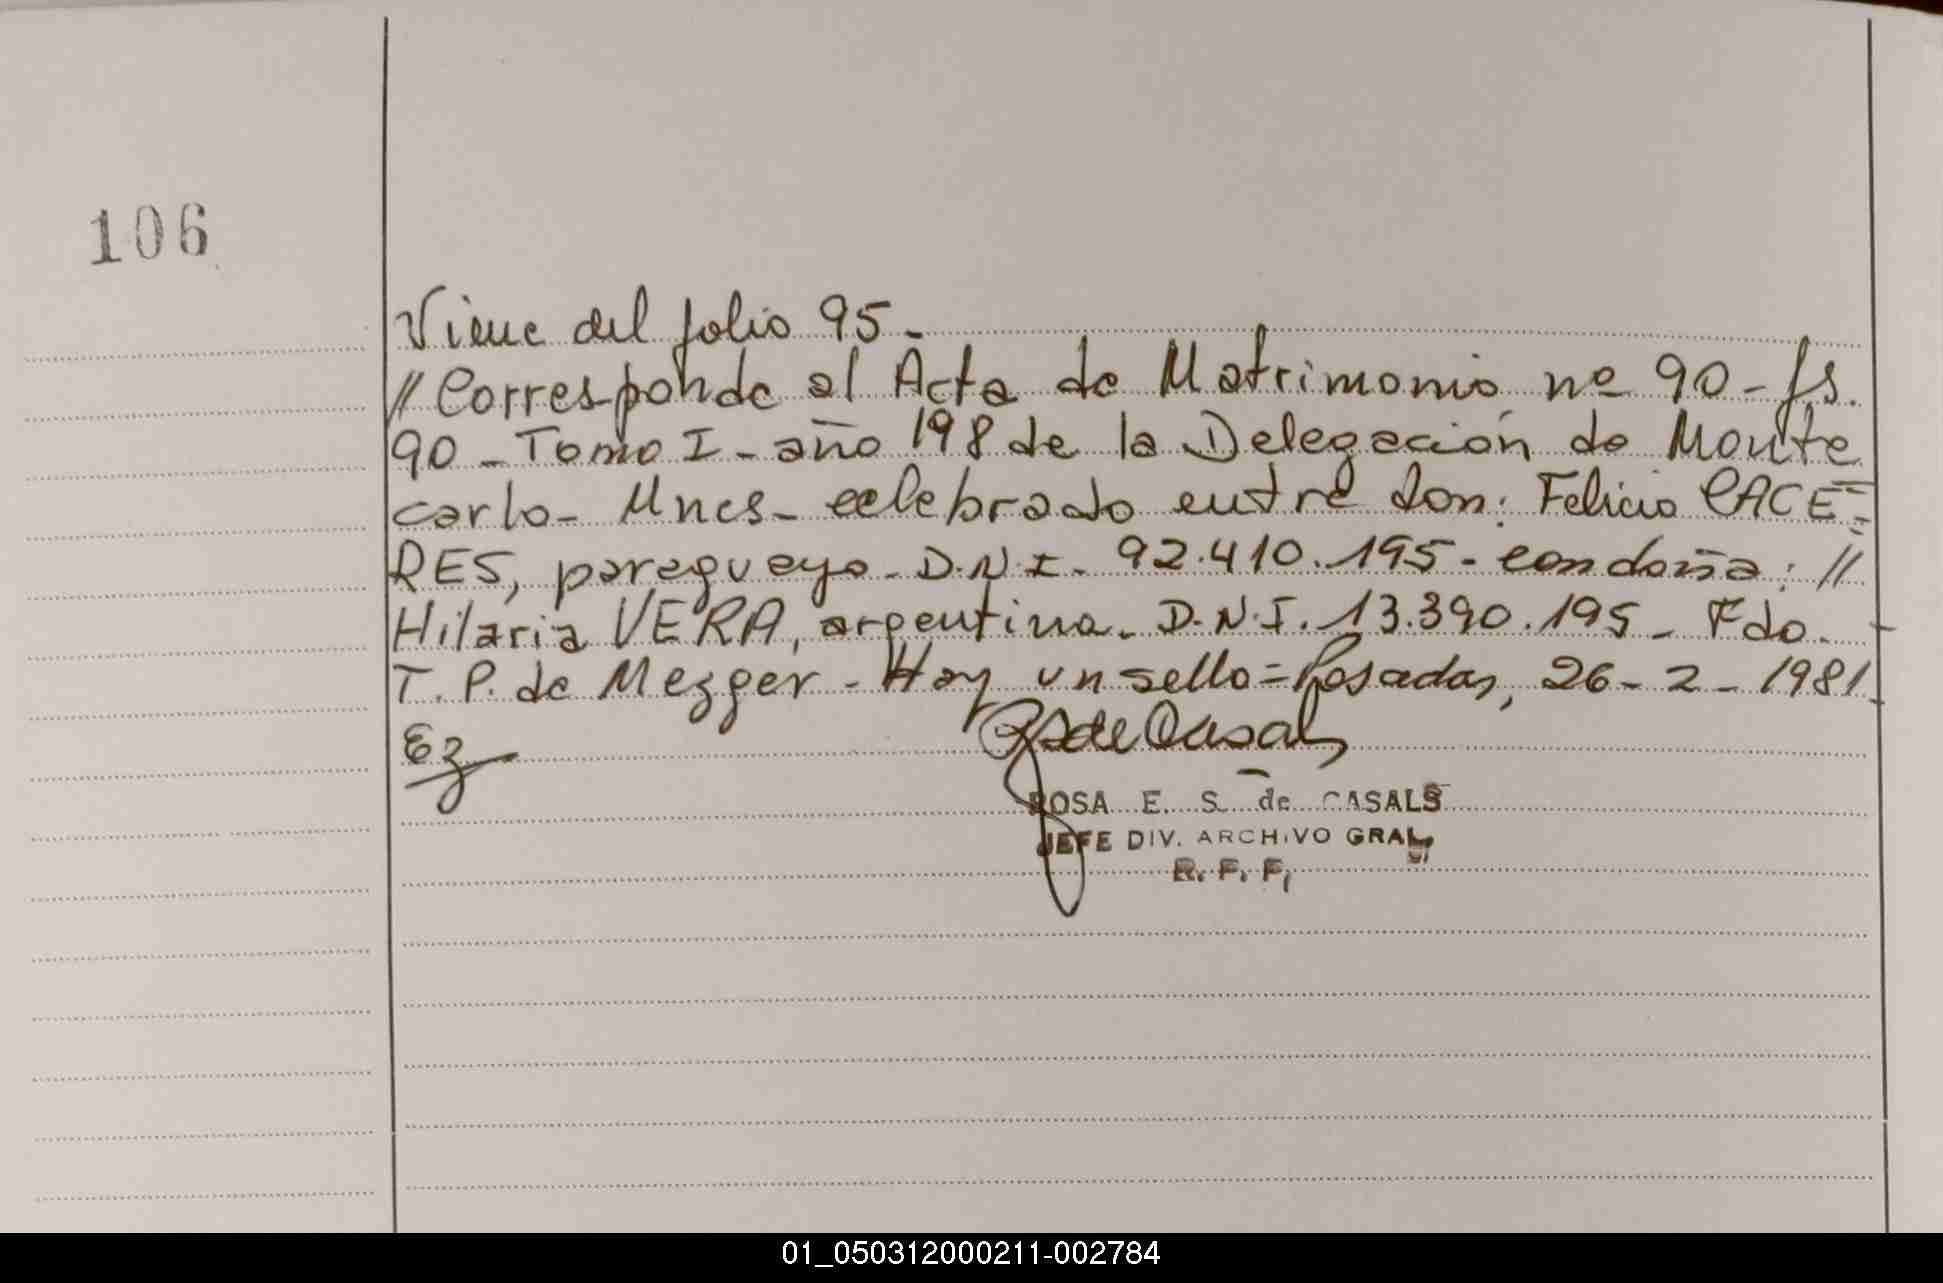 106
Viene del folio 95-
// Corresponde al Acta de Matrimonio nº 90 - fs.
90 - Tomo I - año 198 de la Delegación de Monte
carlo - Mnes - celebrado entre don: Felicio CACE=
RES, paraguayo - D.N.I. 92.410.195 - con doña: //
Hilaria VERA, argentina - D.N.I. 13.390.195 - Fdo.
T. P. de Mezger - Hay un sello = Posadas, 26 - 2 - 1981
Ez
RSdeCasals
ROSA E. S. de CASALS
JEFE DIV. ARCHIVO GRAL,
R. F. F,
01_050312000211-002784